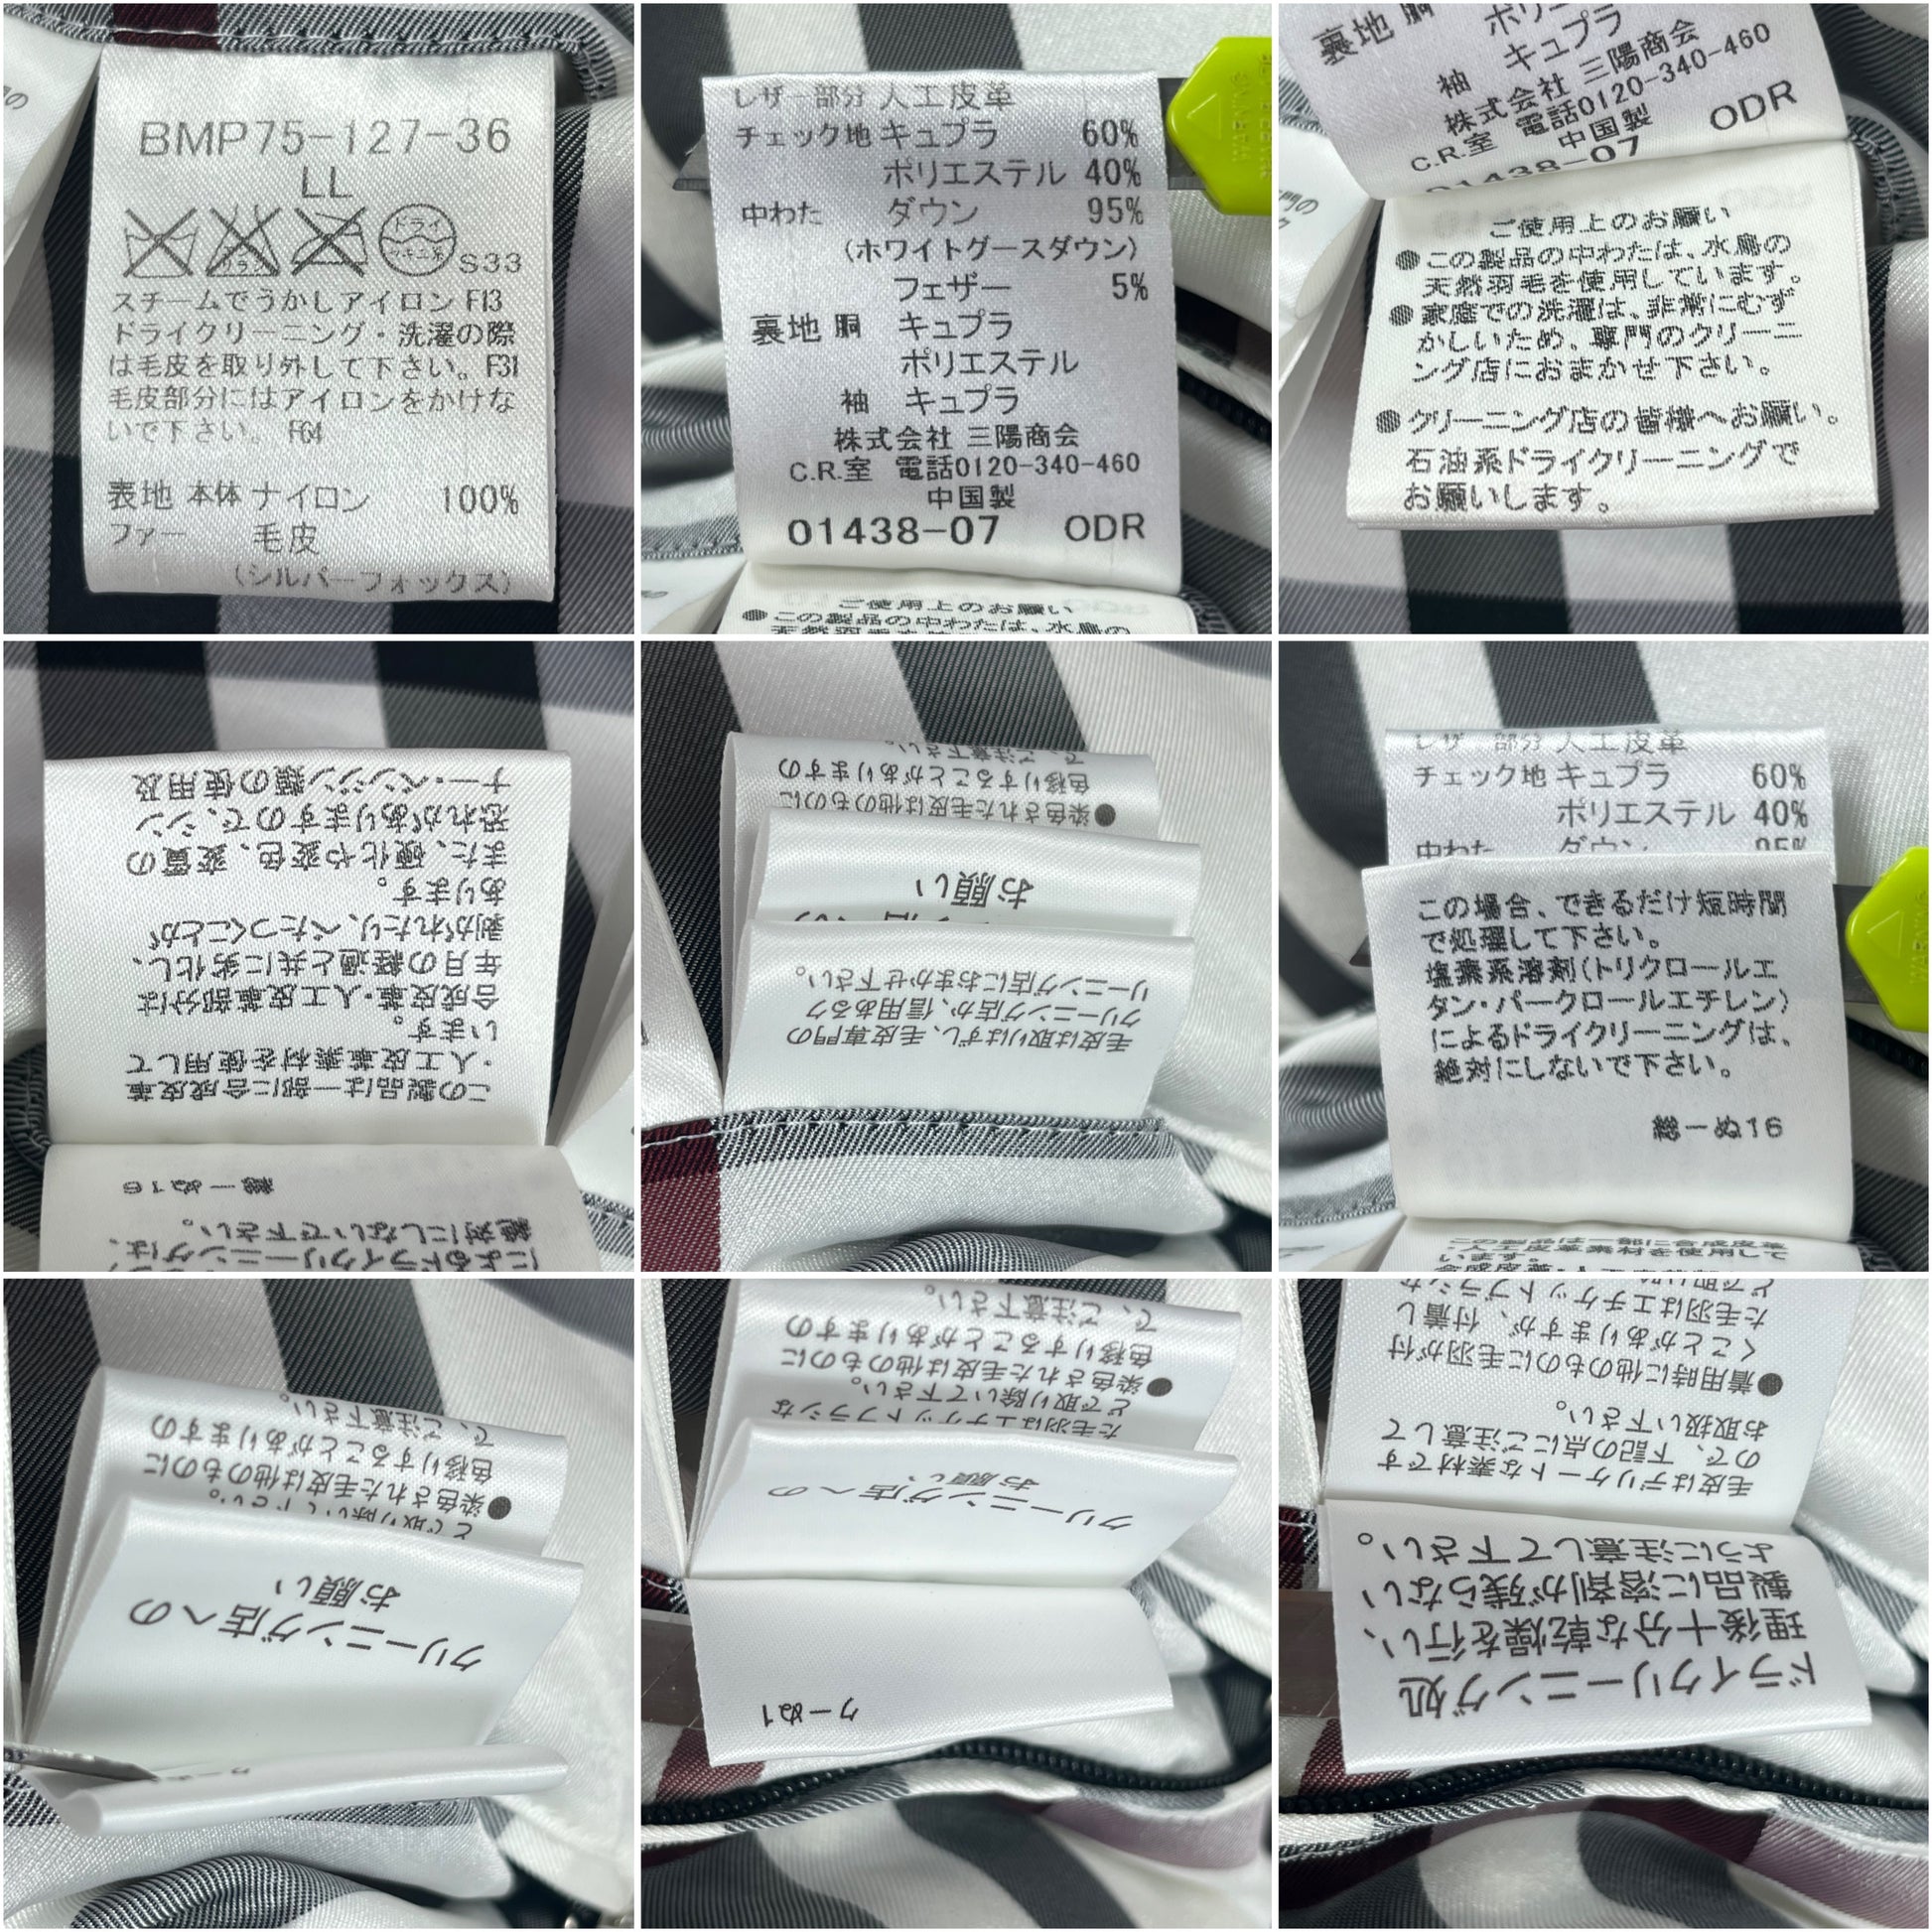 BMP75-127-36
LL
ドライ
セキユ系
S33
スチームでうかしアイロン F13
ドライクリーニング・洗濯の際
は毛皮を取り外して下さい。F31
毛皮部分にはアイロンをかけな
いで下さい。 F64
表地 本体 ナイロン 100%
ファー 毛皮
(シルバーフォックス)
レザー部分 人工皮革
チェック地 キュプラ 60%
ポリエステル 40%
中わた ダウン 95%
(ホワイトグースダウン)
フェザー 5%
裏地 胴 キュプラ
ポリエステル
袖 キュプラ
株式会社 三陽商会
C.R.室 電話0120-340-460
中国製
01438-07 ODR
ご使用上のお願い
●この製品の中わたは、水鳥の
裏地 胴
キュプラ
袖
株式会社 三陽商会
C.R.室 電話0120-340-460
中国製
01438-07 ODR
ご使用上のお願い
●この製品の中わたは、水鳥の
天然羽毛を使用しています。
●家庭での洗濯は、非常にむず
かしいため、専門のクリーニ
ング店におまかせ下さい。
●クリーニング店の皆様へお願い。
石油系ドライクリーニングで
お願いします。
この製品は一部に合成皮革
・人工皮革素材を使用して
います。
合成皮革・人工皮革部分は
年月の経過と共に劣化し、
剥がれたり、べたつくことが
あります。
また、硬化や変色、変質の
恐れがありますので、シン
ナー・ベンジン類の使用及
によるドライクリーニングは、
絶対にしないで下さい。
総ーぬ16
●染色された毛皮は他のものに
色移りすることがありますの
で、ご注意下さい。
お願い
毛皮は取りはずし、毛皮専門の
クリーニング店か、信用あるク
リーニング店におまかせ下さい。
レザー部分 人工皮革
チェック地 キュプラ 60%
ポリエステル 40%
中わた ダウン 95%
この場合、できるだけ短時間
で処理して下さい。
塩素系溶剤(トリクロールエ
タン・パークロールエチレン)
によるドライクリーニングは、
絶対にしないで下さい。
総ーぬ16
この製品は一部に合成皮革
・人工皮革素材を使用して
います。
とで取り除いて下さい。
●染色された毛皮は他のものに
色移りすることがありますの
で、ご注意下さい。
クリーニング店への
お願い
た毛羽はエチケットブラシな
どで取り除いて下さい。
●染色された毛皮は他のものに
色移りすることがありますの
で、ご注意下さい。
クリーニング店への
お願い
クーぬ1
毛皮はデリケートな素材です
ので、下記の点にご注意して
お取扱い下さい。
●着用時に他のものに毛羽が付
くことがありますが、付着し
た毛羽はエチケットブラシな
ドライクリーニング処
理後十分な乾燥を行い、
製品に溶剤が残らない
ように注意して下さい。